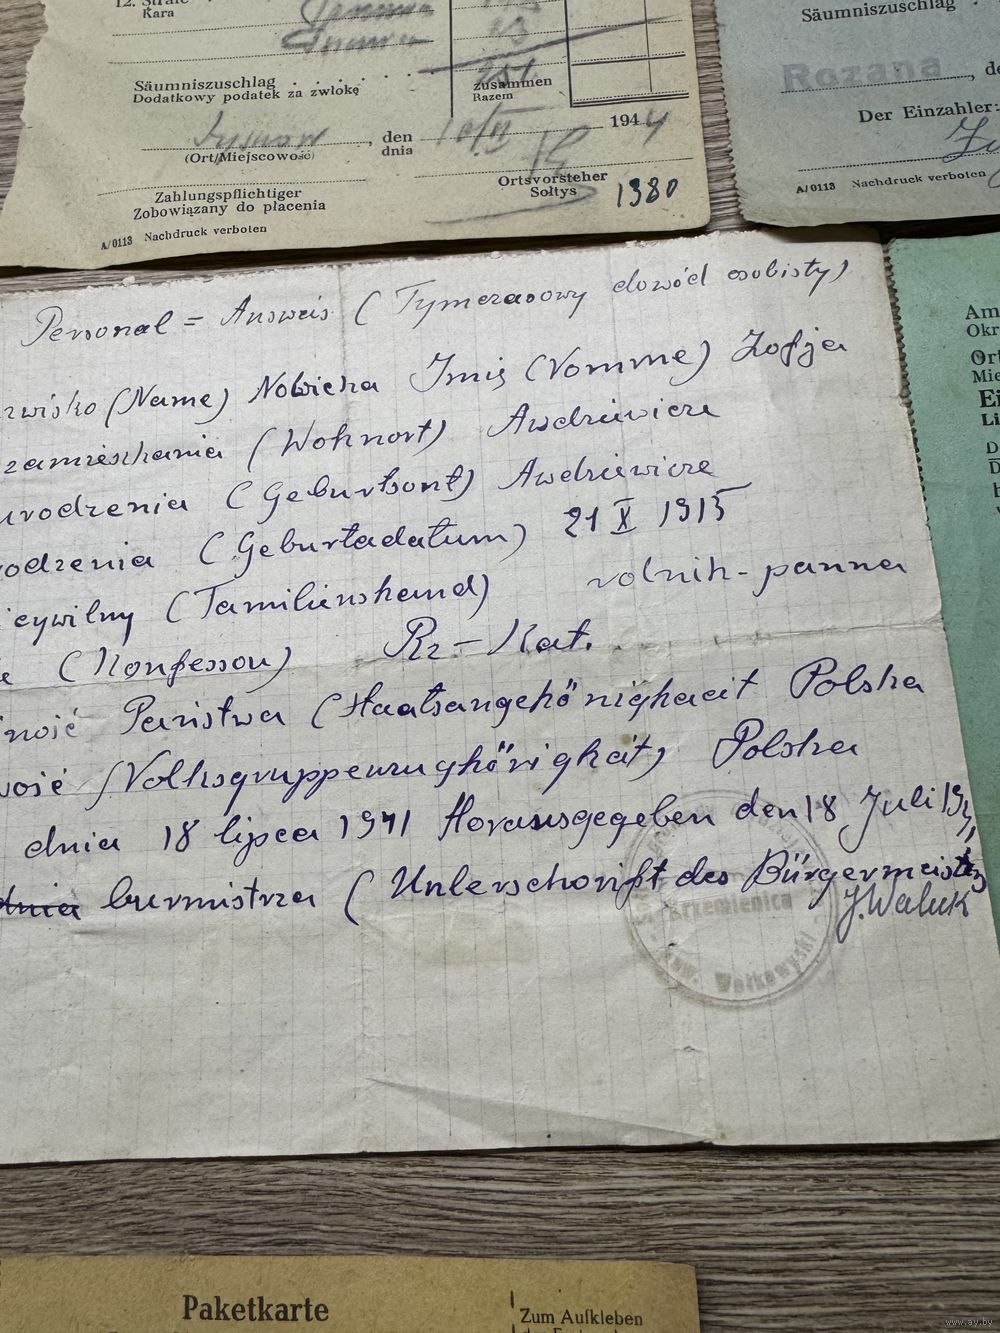 12. Strafe
Kara
Säumniszuschlag . . . . . . .
Dodatkowy podatek za zwłokę
zusammen
Razem
251
, den
dnia
194 4
(Ort/Miejscowość)
Zahlungspflichtiger
Zobowiązany do płacenia
Ortsvorsteher
Sołtys
1380
A/0113 Nachdruck verboten
Säumniszuschlag
Rozana
, de
Der Einzahler:
A/0113 Nachdruck verboten
Am
Okr
Ort
Mie
Ei
Li
D
D
Personal = Answeis (Tymczasowy dowód osobisty)
zwisko (Name) Nowicka Imię (Vornme) Zofja
zamieszkania (Wohnort) Awdziewicze
urodzenia (Geburtsont) Awdziewicze
odzenia (Geburtadatum) 21 X 1915
cywilny (Familienshand) rolnik-panna
(Konfesson) Rz-Kat.
ność Państwa (Staatsangehönighaeit Polska
wość (Volksgruppenzughörigkeit) Polska
dnia 18 lipca 1941 Horausgegeben den 18 Juli 194
burmistrza (Unlerschorift des Bürgermeisters
J. Waluk
Krzemienica
pow. Wołkowyski
Paketkarte
Zum Aufkleben
www.ay.by